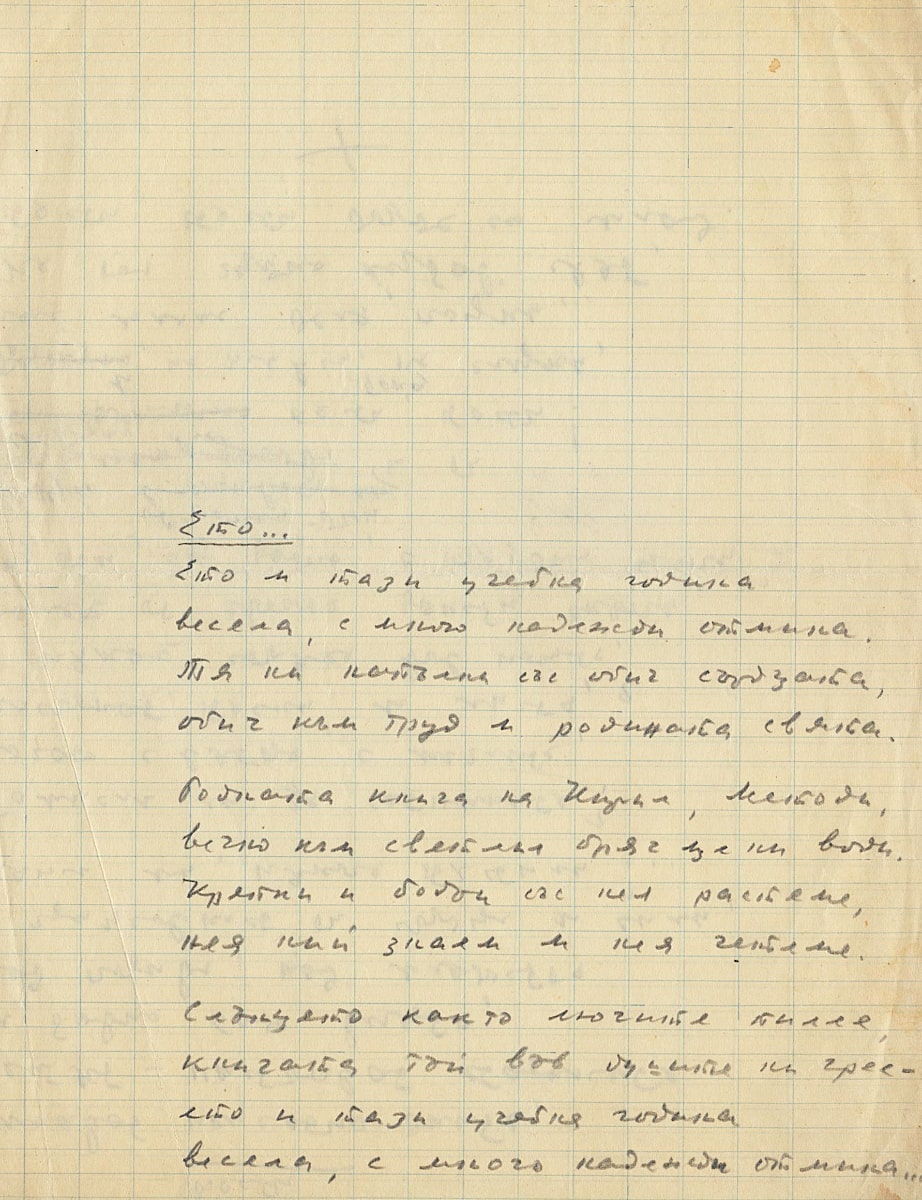 Ето...
Ето и тази учебна година
весела, с много надежди отмина.
Тя ни напълни със обич сърцата,
обич към труд и родината свята.
Родната книга на Кирил, Методи,
вечно към светлия бряг ще ни води.
Крепки и бодри със нея растеме,
нея ний знаем и нея четеме.
Слънцето както лъчите пилее,
книгата той във душите ни грее –
ето и тази учебна година
весела, с много надежди отмина...